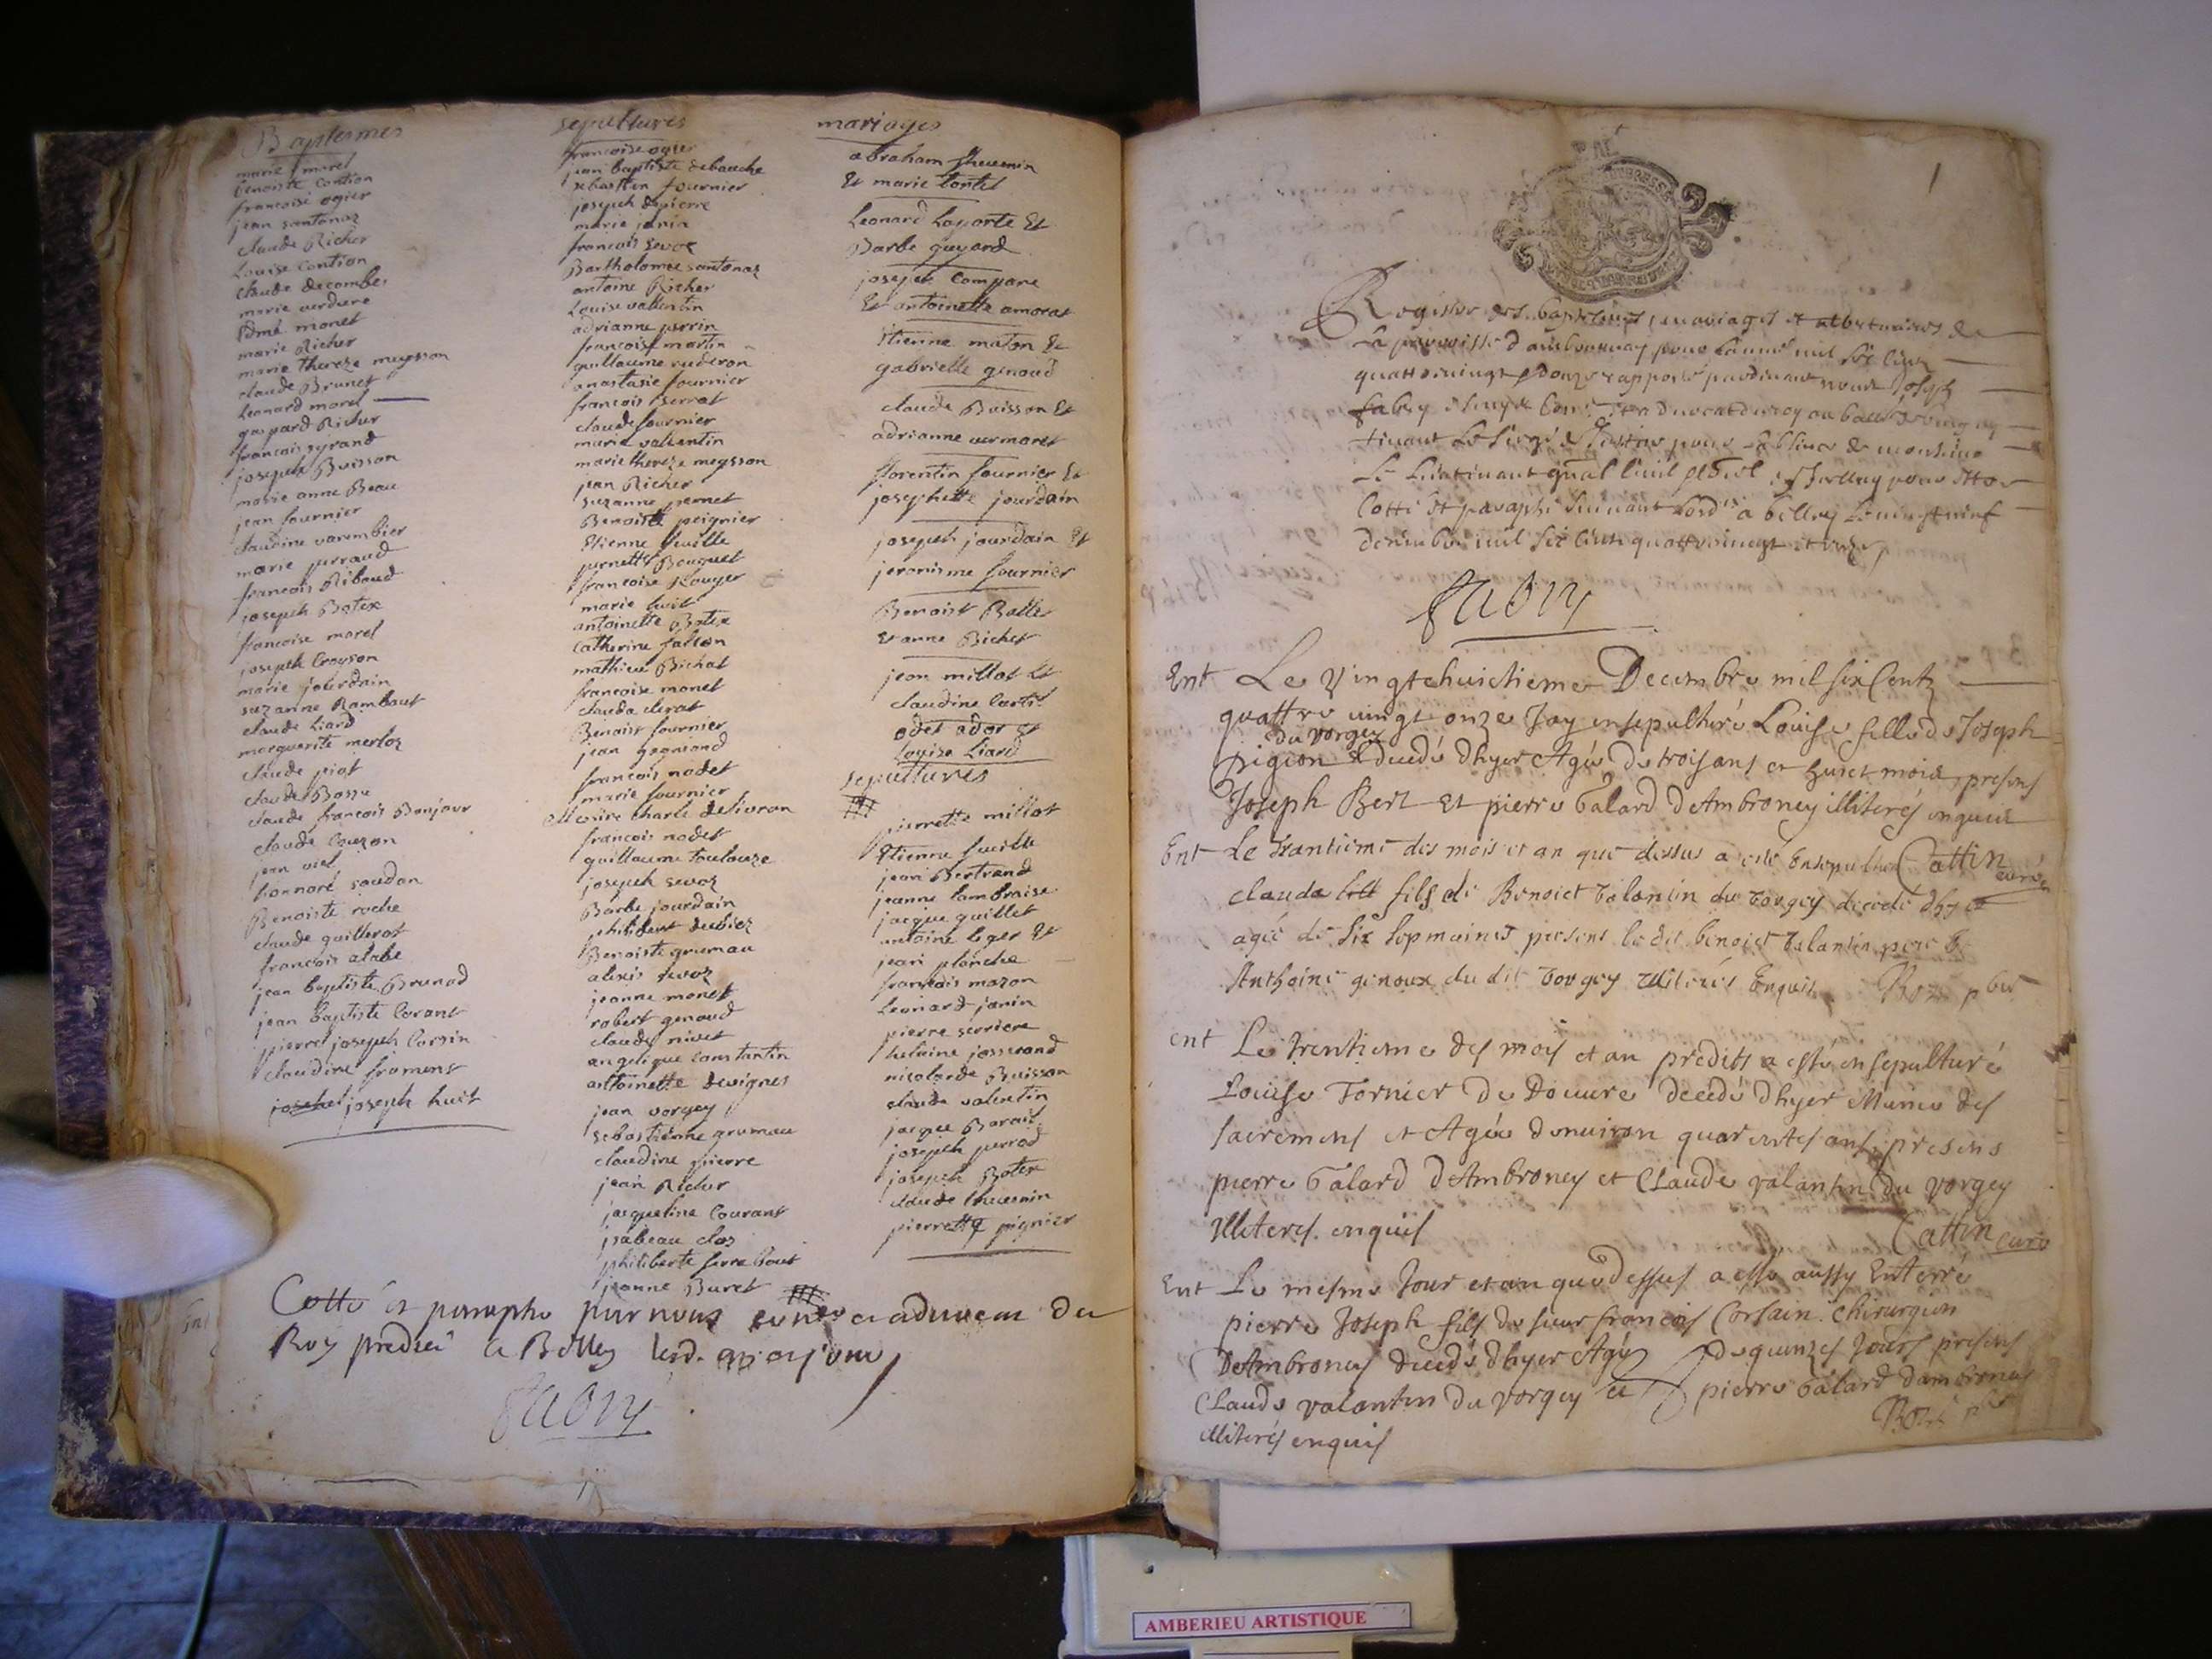 Baptesmes
marie morel
benoiste Contion
francoise ogier
jean santonaz
claude Richer
Louise Contion
claude decombes
marie verdure
Edmé monet
marie Richer
marie thereze meysson
claude Brunet
Leonard morel
gaspard Richer
francois syrand
joseph Buisson
marie anne Beau
jean fournier
claudine varembier
marie perraud
francois Ribaud
joseph Botex
francoise morel
joseph Croyson
marie jourdain
suzanne Rambaut
claude Liard
marguerite merloz
claude piot
claude Bossu
claude francois Bonjour
claude Couzon
jean viel
honnoré saudan
Benoiste roche
claude guillerot
francois alabe
jean baptiste Brunod
jean baptiste Corant
pierre joseph Corsin
claudine froment
joseph huit
sepultures
francoise ogier
jean baptiste debauche
sebastien fournier
joseph depierre
marie janin
francois sevoz
Bartholomée santonaz
antoine Richer
Louise vallentin
adrianne perrin
francoise martin
guillaume ruderon
anastasie fournier
francois Berrat
claude fournier
marie valentin
marie thereze meysson
jean Richer
suzanne pernet
Benoiste peignier
Etienne feuille
pernette Bouquet
francoise Rouyer
marie huit
antoinette Botex
Catherine falcon
mathieu Bichat
francoise monet
clauda clerat
Benoist fournier
jean gagniand
francois nodet
marie fournier
Messire charle delivron
francois nodet
guillaume toulouze
joseph sevoz
Barbe jourdain
philibert dubiez
Benoiste grumau
alexis sevoz
jeanne monet
robert genoud
claude nivet
angelique Constantin
antoinette devignes
jean vorgey
sebastienne grumau
claudine pierre
jean Richer
jacqueline Courant
isabeau cloz
philiberte serrabout
jeanne Buret
mariages
abraham thevenin
Et marie tortel
Leonard Laporte Et
Barbe guyard
joseph Compare
Et antoinette amorat
Etienne maton Et
gabrielle genoud
claude Buisson Et
adrianne vermorel
florentin fournier Et
josephette jourdain
joseph jourdain Et
jeronisme fournier
Benoist Balle
Et anne Bichet
jean millot Et
claudine Cortet
odet ador Et
Louise Liard
sepultures
pierrette millot
Etienne fueille
jean Bertrand
jeanne Lambraise
jacque guillet
antoine leger Et
jean planche
francois mazon
Leonard janin
pierre serriere
helaine josserand
nicolarde Buisson
claude valentin
jacque Borait
joseph perrod
joseph Botex
claude thevenin
pierrette pignier
Cotté et paraphé par nous
Roy predict a Belley
Fabry
1
Registre des baptesmes, mariages et
La parroisse d'ambournay pour l'année mil six cent
quattrevingt et donze
Le Lieutenant
Cotté et paraphé suivant a belley le vingt neuf
decembre mil six cent quattrevingt et unze
Fabry
Ent Le Vingt huictieme Decembre mil six Centz
quattre vingt onze Jay ensepulturé Louise fille de Joseph
du vorgey
pigeon decedé dhyer Agée de trois ans et huict mois presens
Joseph Bert et pierre Galard dAmbroney illiterés enquis
Ent Le trantieme des mois et an que dessus a esté Ensepulturé Cattin curé
claude fils de Benoict Valantin du vorgey decedé dhyer
agée de six sepmaines presens le dit benoict valantin pere Et
Anthoine genoux du dit vorgey illiterés Enquis
ent Le trentieme des mois et an preditt a esté ensepulturé
Louise Fornier de Douvre decedé dhyer Munie des
sacremens et Agée denuiron quarentes ans, presens
pierre Galard dAmbroney et Claude valantin du vorgey
Illiterés enquis Cattin curé
Ent Le mesme Jour et an que dessus a esté aussy Enterré
pierre Joseph fils de sieur francois Corsain Chirurgien
DeAmbroney decedé dhyer Agé de quinzes Jours presens
Claude valantin du vorgey et pierre Galard dambroney
illiterés enquis
AMBERIEU ARTISTIQUE